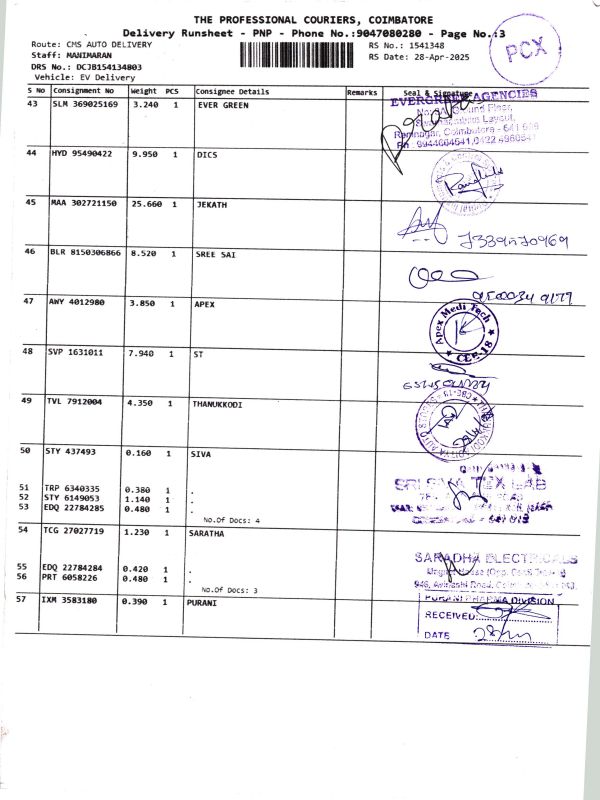 THE PROFESSIONAL COURIERS, COIMBATORE
Delivery Runsheet - PNP - Phone No.:9047080280 - Page No.:3
Route: CMS AUTO DELIVERY RS No.: 1541348
Staff: MANIMARAN RS Date: 28-Apr-2025
DRS No.: DCJB154134803
Vehicle: EV Delivery
PCX
S No Consignment No Weight PCS Consignee Details Remarks Seal & Signature
43 SLM 369025169 3.240 1 EVER GREEN
EVERGREEN AGENCIES
Ramnagar, Coimbatore - 641 009
44 HYD 95490422 9.950 1 DICS
45 MAA 302721150 25.660 1 JEKATH
46 BLR 8150306866 8.520 1 SREE SAI
47 AWY 4012980 3.850 1 APEX
Apex Medi Tech
CBE-18
48 SVP 1631011 7.940 1 ST
49 TVL 7912004 4.350 1 THANUKKODI
50 STY 437493 0.160 1 SIVA
51 TRP 6340335 0.380 1 .
52 STY 6149053 1.140 1 .
53 EDQ 22784285 0.480 1 .
No.Of Docs: 4
SRI SIVA TEX LAB
54 TCG 27027719 1.230 1 SARATHA
55 EDQ 22784284 0.420 1 .
56 PRT 6058226 0.480 1 .
No.Of Docs: 3
SARADHA ELECTRICALS
57 IXM 3583180 0.390 1 PURANI
PURANI PHARMA DIVISION
RECEIVED
DATE